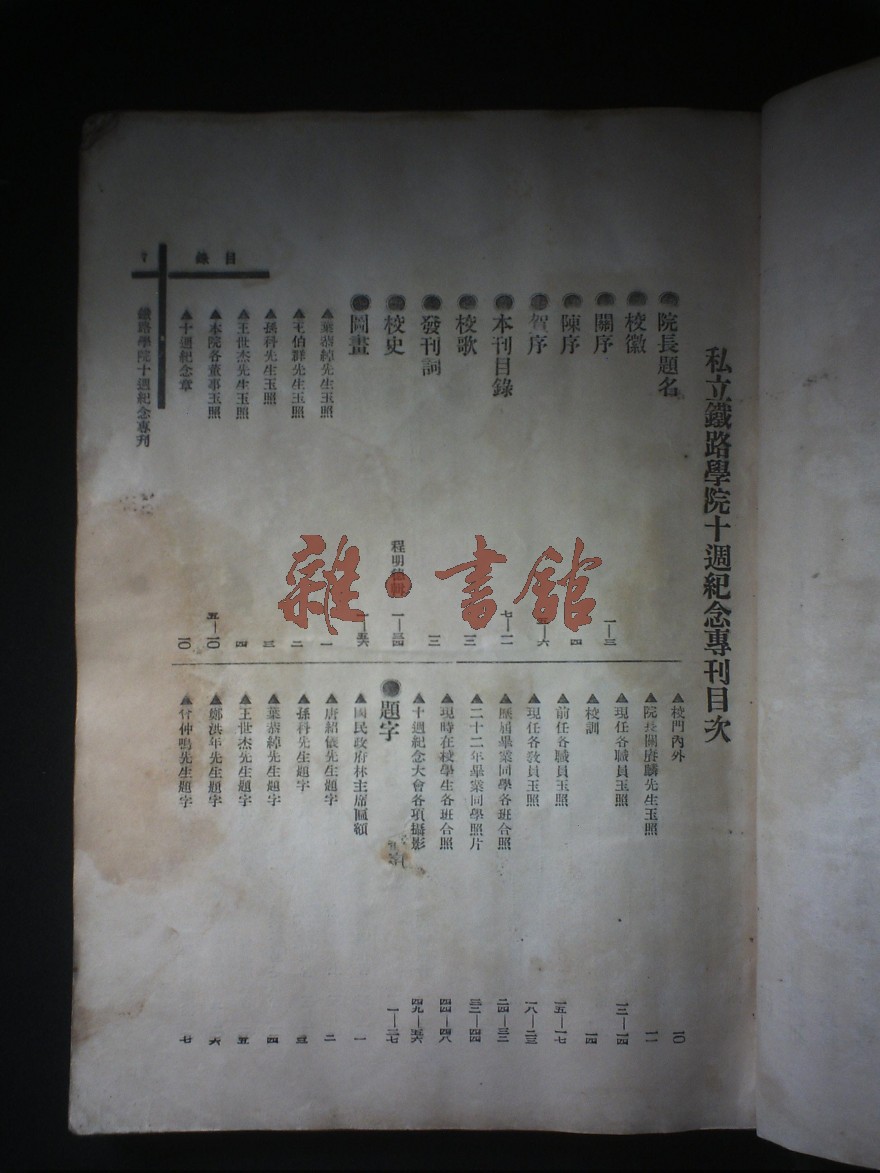 私立鐵路學院十週紀念專刊目次
院長題名
校徽
關序 一—三
陳序 四
賀序 五—六
本刊目錄 七—一一
校歌 三
發刊詞 三
校史 程明 輯 一—三四
圖畫 一—五六
▲葉恭綽先生玉照 一
▲王伯群先生玉照 二
▲孫科先生玉照 三
▲王世杰先生玉照 四
▲本院各董事玉照 五—一〇
▲十週紀念章 一〇
▲校門內外 一〇
▲院長關賡麟先生玉照 一一
▲現任各職員玉照 一三—一四
▲校訓 一四
▲前任各職員玉照 一五—一七
▲現任各教員玉照 一八—二三
▲歷屆畢業同學各班合照 二四—三三
▲二十二年畢業同學照片 三三—四四
▲現時在校學生各班合照 四四—四八
▲十週紀念大會各項攝影 四九—五六
題字 一—二七
▲國民政府林主席匾額 一
▲唐紹儀先生題字 二
▲孫科先生題字 三
▲葉恭綽先生題字 四
▲王世杰先生題字 五
▲鄭洪年先生題字 六
▲曾仲鳴先生題字 七
目錄
鐵路學院十週紀念專刊
雜書館